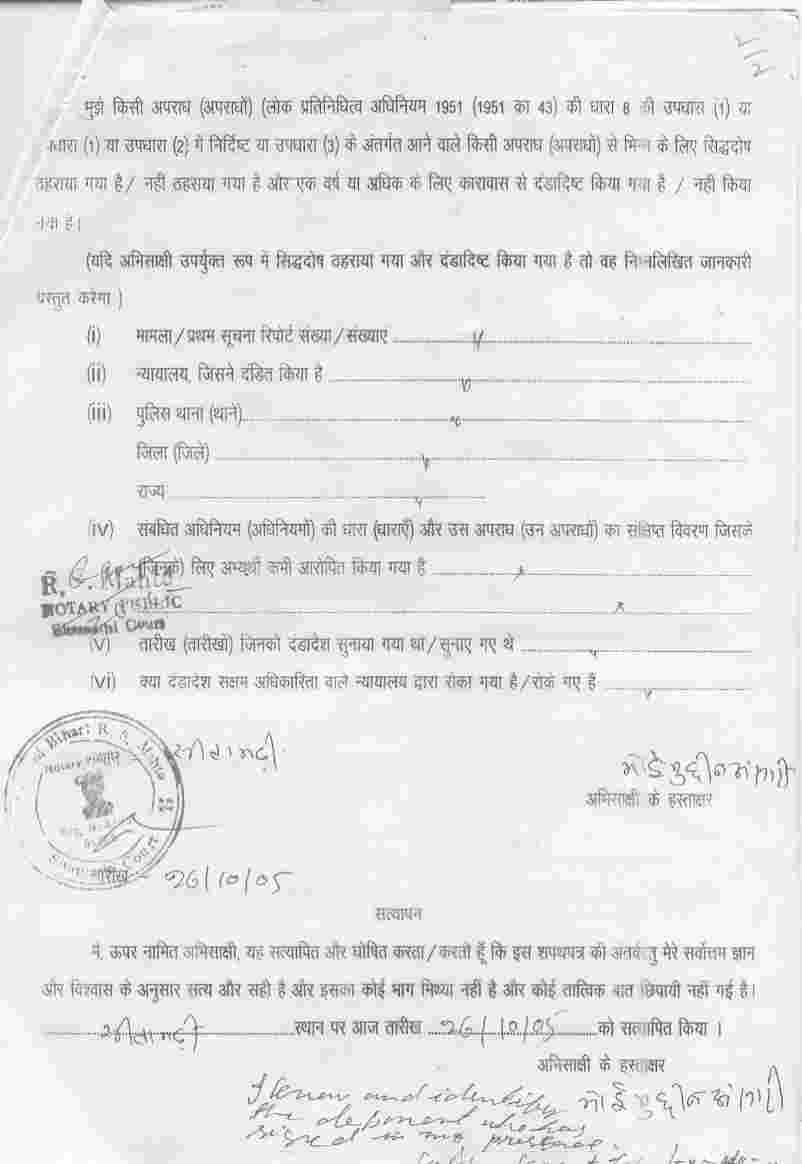 2/2
मुझे किसी अपराध (अपराधों) (लोक प्रतिनिधित्व अधिनियम 1951 (1951 का 43) की धारा 8 की उपधारा (1) या
धारा (1) या उपधारा (2) में निर्दिष्ट या उपधारा (3) के अंतर्गत आने वाले किसी अपराध (अपराधों) से भिन्न के लिए सिद्धदोष
ठहराया गया है / नहीं ठहराया गया है और एक वर्ष या अधिक के लिए कारावास से दंडादिष्ट किया गया है / नहीं किया
गया है।
(यदि अभिसाक्षी उपर्युक्त रूप में सिद्धदोष ठहराया गया और दंडादिष्ट किया गया है तो वह निम्नलिखित जानकारी
प्रस्तुत करेगा )
(i) मामला / प्रथम सूचना रिपोर्ट संख्या / संख्याएं
(ii) न्यायालय, जिसने दंडित किया है
(iii) पुलिस थाना (थाने)
जिला (जिले)
राज्य
(iv) संबंधित अधिनियम (अधिनियमों) की धारा (धाराएँ) और उस अपराध (उन अपराधों) का संक्षिप्त विवरण जिसके
(जिनके) लिए अभ्यर्थी कभी आरोपित किया गया है
NOTARY PUBLIC
Sitamarhi Court
(v) तारीख (तारीखों) जिनको दंडादेश सुनाया गया था / सुनाए गए थे
(vi) क्या दंडादेश सक्षम अधिकारिता वाले न्यायालय द्वारा रोका गया है / रोके गए हैं
सीतामढ़ी
मोईुद्दीन अंसारी
अभिसाक्षी के हस्ताक्षर
तारीख 26/10/05
सत्यापन
मैं, ऊपर नामित अभिसाक्षी, यह सत्यापित और घोषित करता / करती हूँ कि इस शपथपत्र की अन्तर्वस्तु मेरे सर्वोत्तम ज्ञान
और विश्वास के अनुसार सत्य और सही है और इसका कोई भाग मिथ्या नहीं है और कोई तात्विक बात छिपायी नहीं गई है।
सीतामढ़ी स्थान पर आज तारीख 26/10/05 को सत्यापित किया ।
अभिसाक्षी के हस्ताक्षर
मोईुद्दीन अंसारी
I know and identify
the deponent who has
signed in my presence.